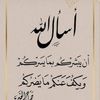 أسأل الله
أن يبشركم بما يسركم
ويكف عنكم ما يضركم